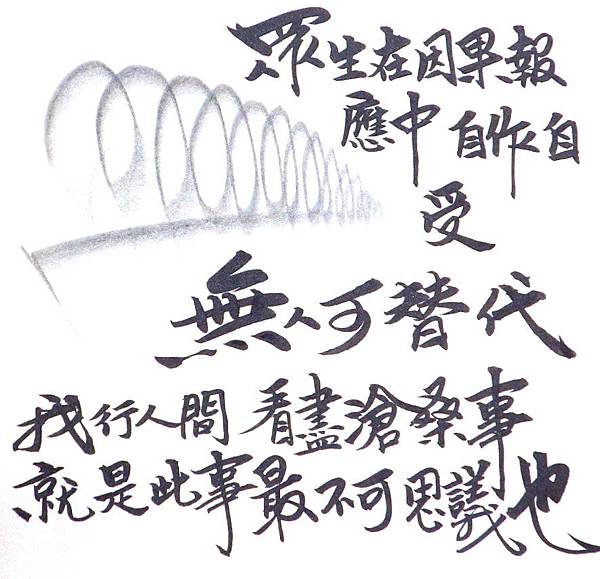 眾生在因果報
應中 自作自
受
無人可替代
我行人間 看盡滄桑事
就是此事最不可思議也